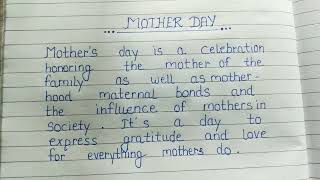 ... MOTHER DAY ...
Mother's day is a celebration
honoring the mother of the
family as well as mother-
hood maternal bonds and
the influence of mothers in
society. It's a day to
express gratitude and love
for everything mothers do.